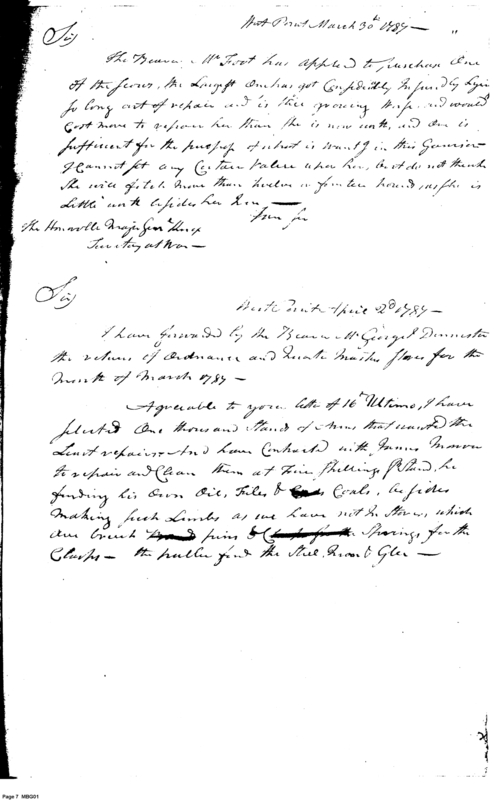 West Point March 30th 1787 —
Sir
The Bearer Mr Foot has applied to purchase One
of the Scows, the Largest One has got Considerably Injured by Lying
So long out of repair and is still growing Worse and would
Cost more to repair her than She is now worth, and One is
Sufficient for the purpose of what is wanted in this Garrison
I Cannot set any Certain Value upon her, but do not think
She will fetch more than twelve or fourteen pounds, as she is
Little worth besides her Iron —
I am Sir
The Honorable Major Genl Knox
Secretary at War —
Sir
West Point April 2d 1787 —
I have forwarded by the Bearer Mr George
the returns of Ordnance and Quarter Master Stores for the
Month of March 1787 —
Agreeable to your letter of 16th Ultimo, I have
Selected One thousand Stands of Arms that wanted the
Least repairs, And have Contracted with James
to repair and Clean them at Five Shillings he
finding his Own Oil, Files & Coals, besides
Making Such Limbs as we have not In Store, which
are breech pins & Springs for the
— the public find the Steel, Iron & Glue —
Page 7 MBG01